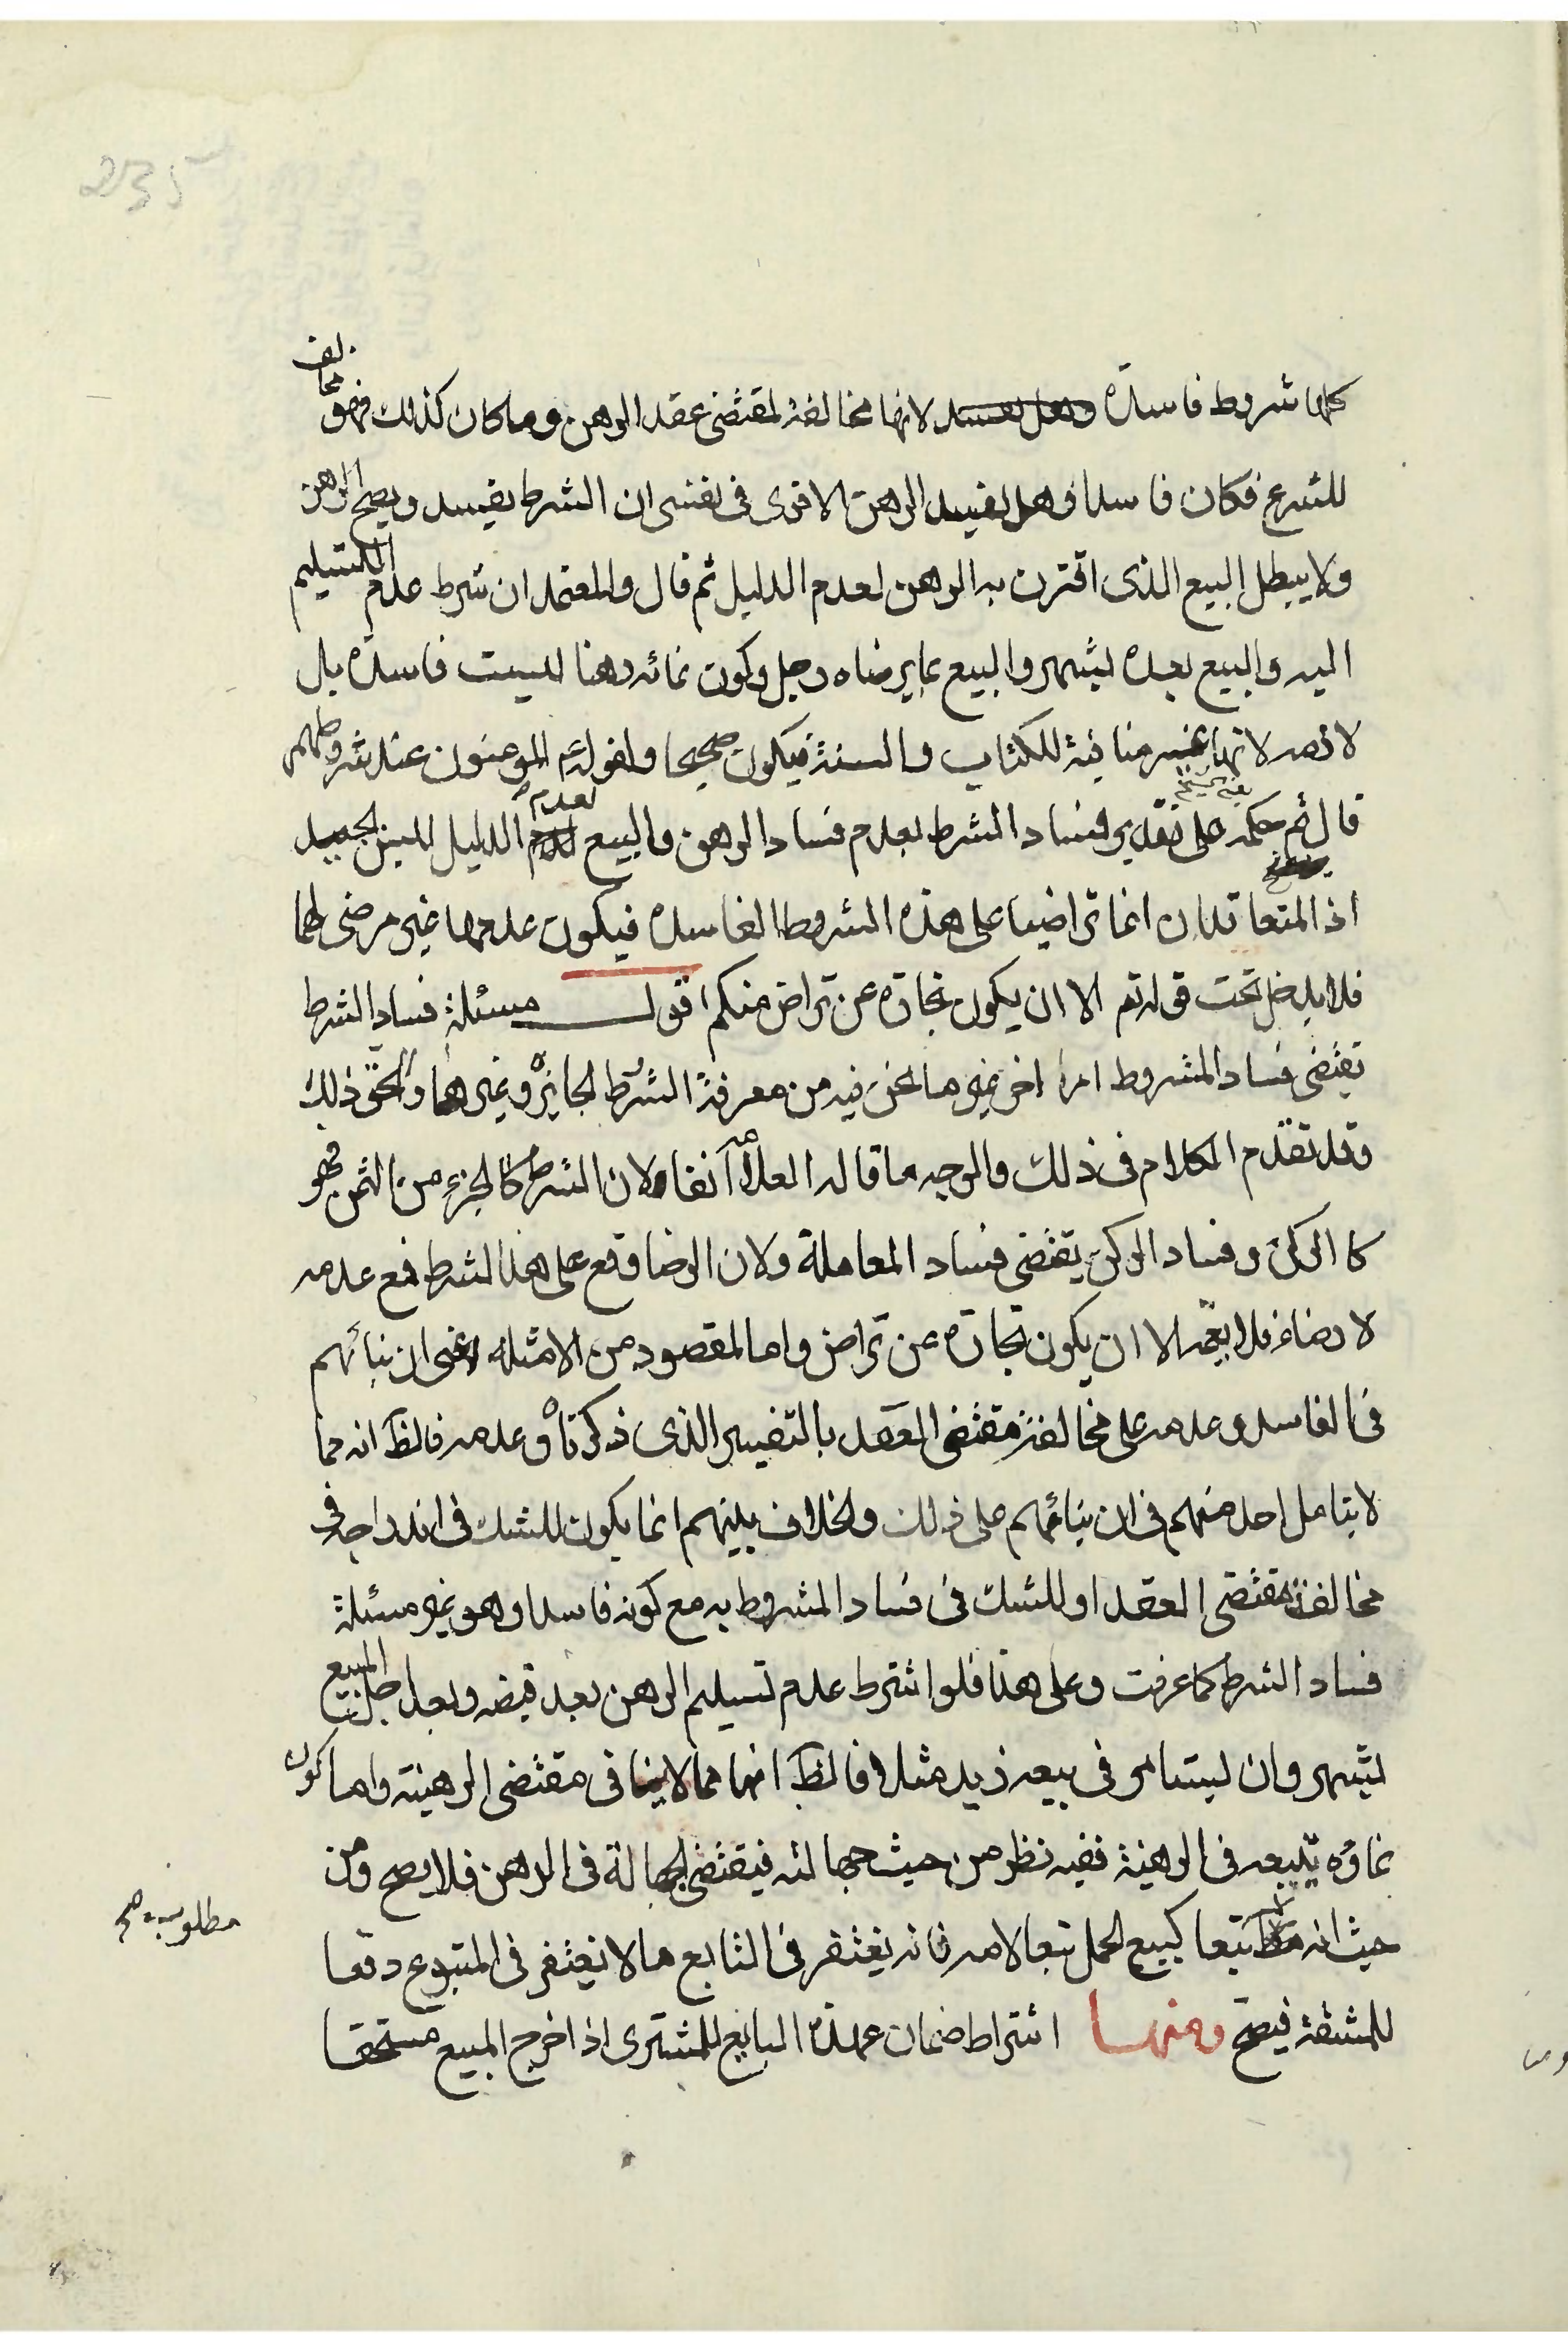 235
كلها شروط فاسدة لانها مخالفة لمقتضى عقد الرهن وما كان كذلك فهو مخالف
للشرع فكان فاسدا وهل يفسد الرهن الاقوى فى نفسى ان الشرط يفسد ويصح الرهن
ولا يبطل البيع الذى اقترن به الرهن لعدم الدليل ثم قال والمعتمد ان شرط عدم التسليم
اليه والبيع بعده بشهر والبيع بما يرضاه رجل وكون نمائه رهنا ليست فاسدة بل
لازمه لانها غير منافية للكتاب والسنة فيكون صحيحا ولقولهم المؤمنون عند شروطهم
قال ثم حكمه على تقدير فساد الشرط بعدم فساد الرهن والبيع لعدم الدليل ليس بجيد
اذ المتعاقدان انما تراضيا على هذه الشروط الفاسده فيكون عدمها غير مرضى لهما
فلا يدخل تحت قوله تم الا ان يكون تجارة عن تراض منكم اقول مسئلة فساد الشرط
تقتضى فساد المشروط امر اخر غير ما نحن فيه من معرفة الشرط الجايز وغيرها والحق ذلك
وقد تقدم الكلام فى ذلك والوجه ما قاله العلامه آنفا ولان الشرط كالجزء من الثمن فهو
كا الركن وفساد الركن يقتضى فساد المعاملة ولان الرضا وقع على هذا الشرط فمع عدمه
لا رضاء فلا يعمه الا ان يكون تجارة عن تراض واما المقصود من الامثله اعنى ان بنائهم
فى الفاسد وعدمه على مخالفة مقتضى العقد بالتفسير الذى ذكرناه وعدمه فالظ انه مما
لا يتامل احد منهم فى ان بنائهم على ذلك والخلاف بينهم انما يكون للشك فى اندراجه فى
مخالفة مقتضى العقد او للشك فى فساد المشروط به مع كونه فاسدا وهو غير مسئلة
فساد الشرط كما عرفت وعلى هذا فلو اشترط عدم تسليم الرهن بعد قبضه وبعد اجل المبيع
بشهر وان يستامر فى بيعه زيد مثلا فالظ انها مما لا ينافى مقتضى الرهنيته واما كون
نماؤه يتبعه فى الرهنية ففيه نظر من حيث جهالته فيقتضى الجهالة فى الرهن فلا يصح ومن
حيث انه تبعا كبيع الحمل تبعا لامه فانه يغتفر فى التابع ما لا يغتفر فى المتبوع دفعا
مطلوب صح
للمشقة فيصح ومنها اشتراط ضمان عهدة البايع للمشترى اذا خرج المبيع مستحقا